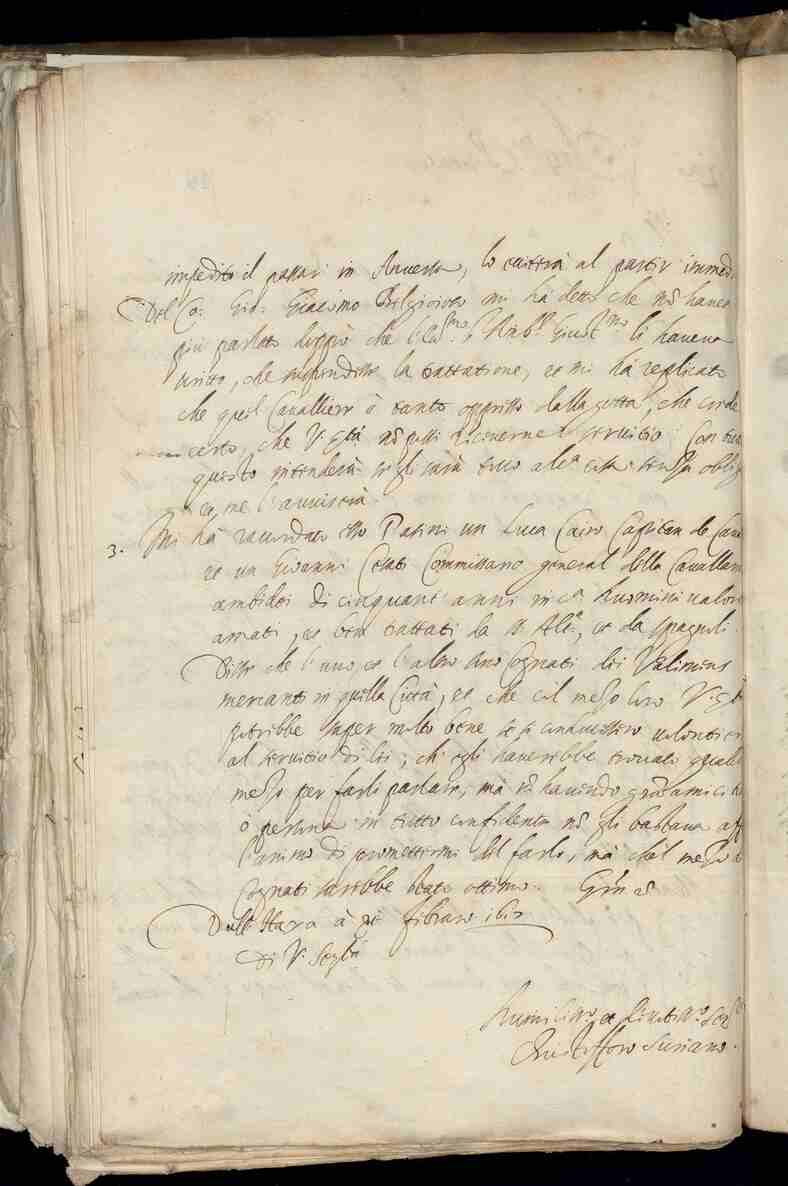 impedito il passar in Anversa, lo eseguirà al partir immed.
Del Co: Gio: Giacomo Belgioioso mi hà detto che nõ haver
più parlato doppò che l' Ill.mo s.r Amb.r Giust.mo li haveva
scritto, che suspendesse la trattatione, et mi hà replicato
che quel Cavallier è tanto oppresso dalla gotta, che crede
certo, che V. Sg.tà nõ possi riceverne servitio. Con tutto
questo intenderà se gli sarà senza oblig
et me l'aviserà.
3. Mi hà raccordato esso Pasini un Luca Cairo Capitan de Cava
et un Giovanni Commissario general della Cavalleria
ambidoi di cinquant'anni in c.a huomini valoro
amati, et ben trattati da S. Alt.a, et da Spagnoli.
Disse che l'uno, et l'altro sono Cognati dei Valimens
mercanti in quella Città, et che col mezo loro V. Sg.tà
potrebbe saper molto bene se si conducessero volontieri
al servitio di lei; ch'egli haverebbe trovato qualche
mezo per farli parlare, mà nõ havendo grãd'amicitia
ò persona in tutto confidente nõ gli bastava
l'animo di promettermi del farlo, mà ch'el mezo de
Cognati sarebbe stato ottimo. Gr̃a etc
Dall'Haya à di febraro 1618
Di V. Ser.tà
Humiliss.mo et Devotiss.mo Ser.re
Christofforo Suriano.